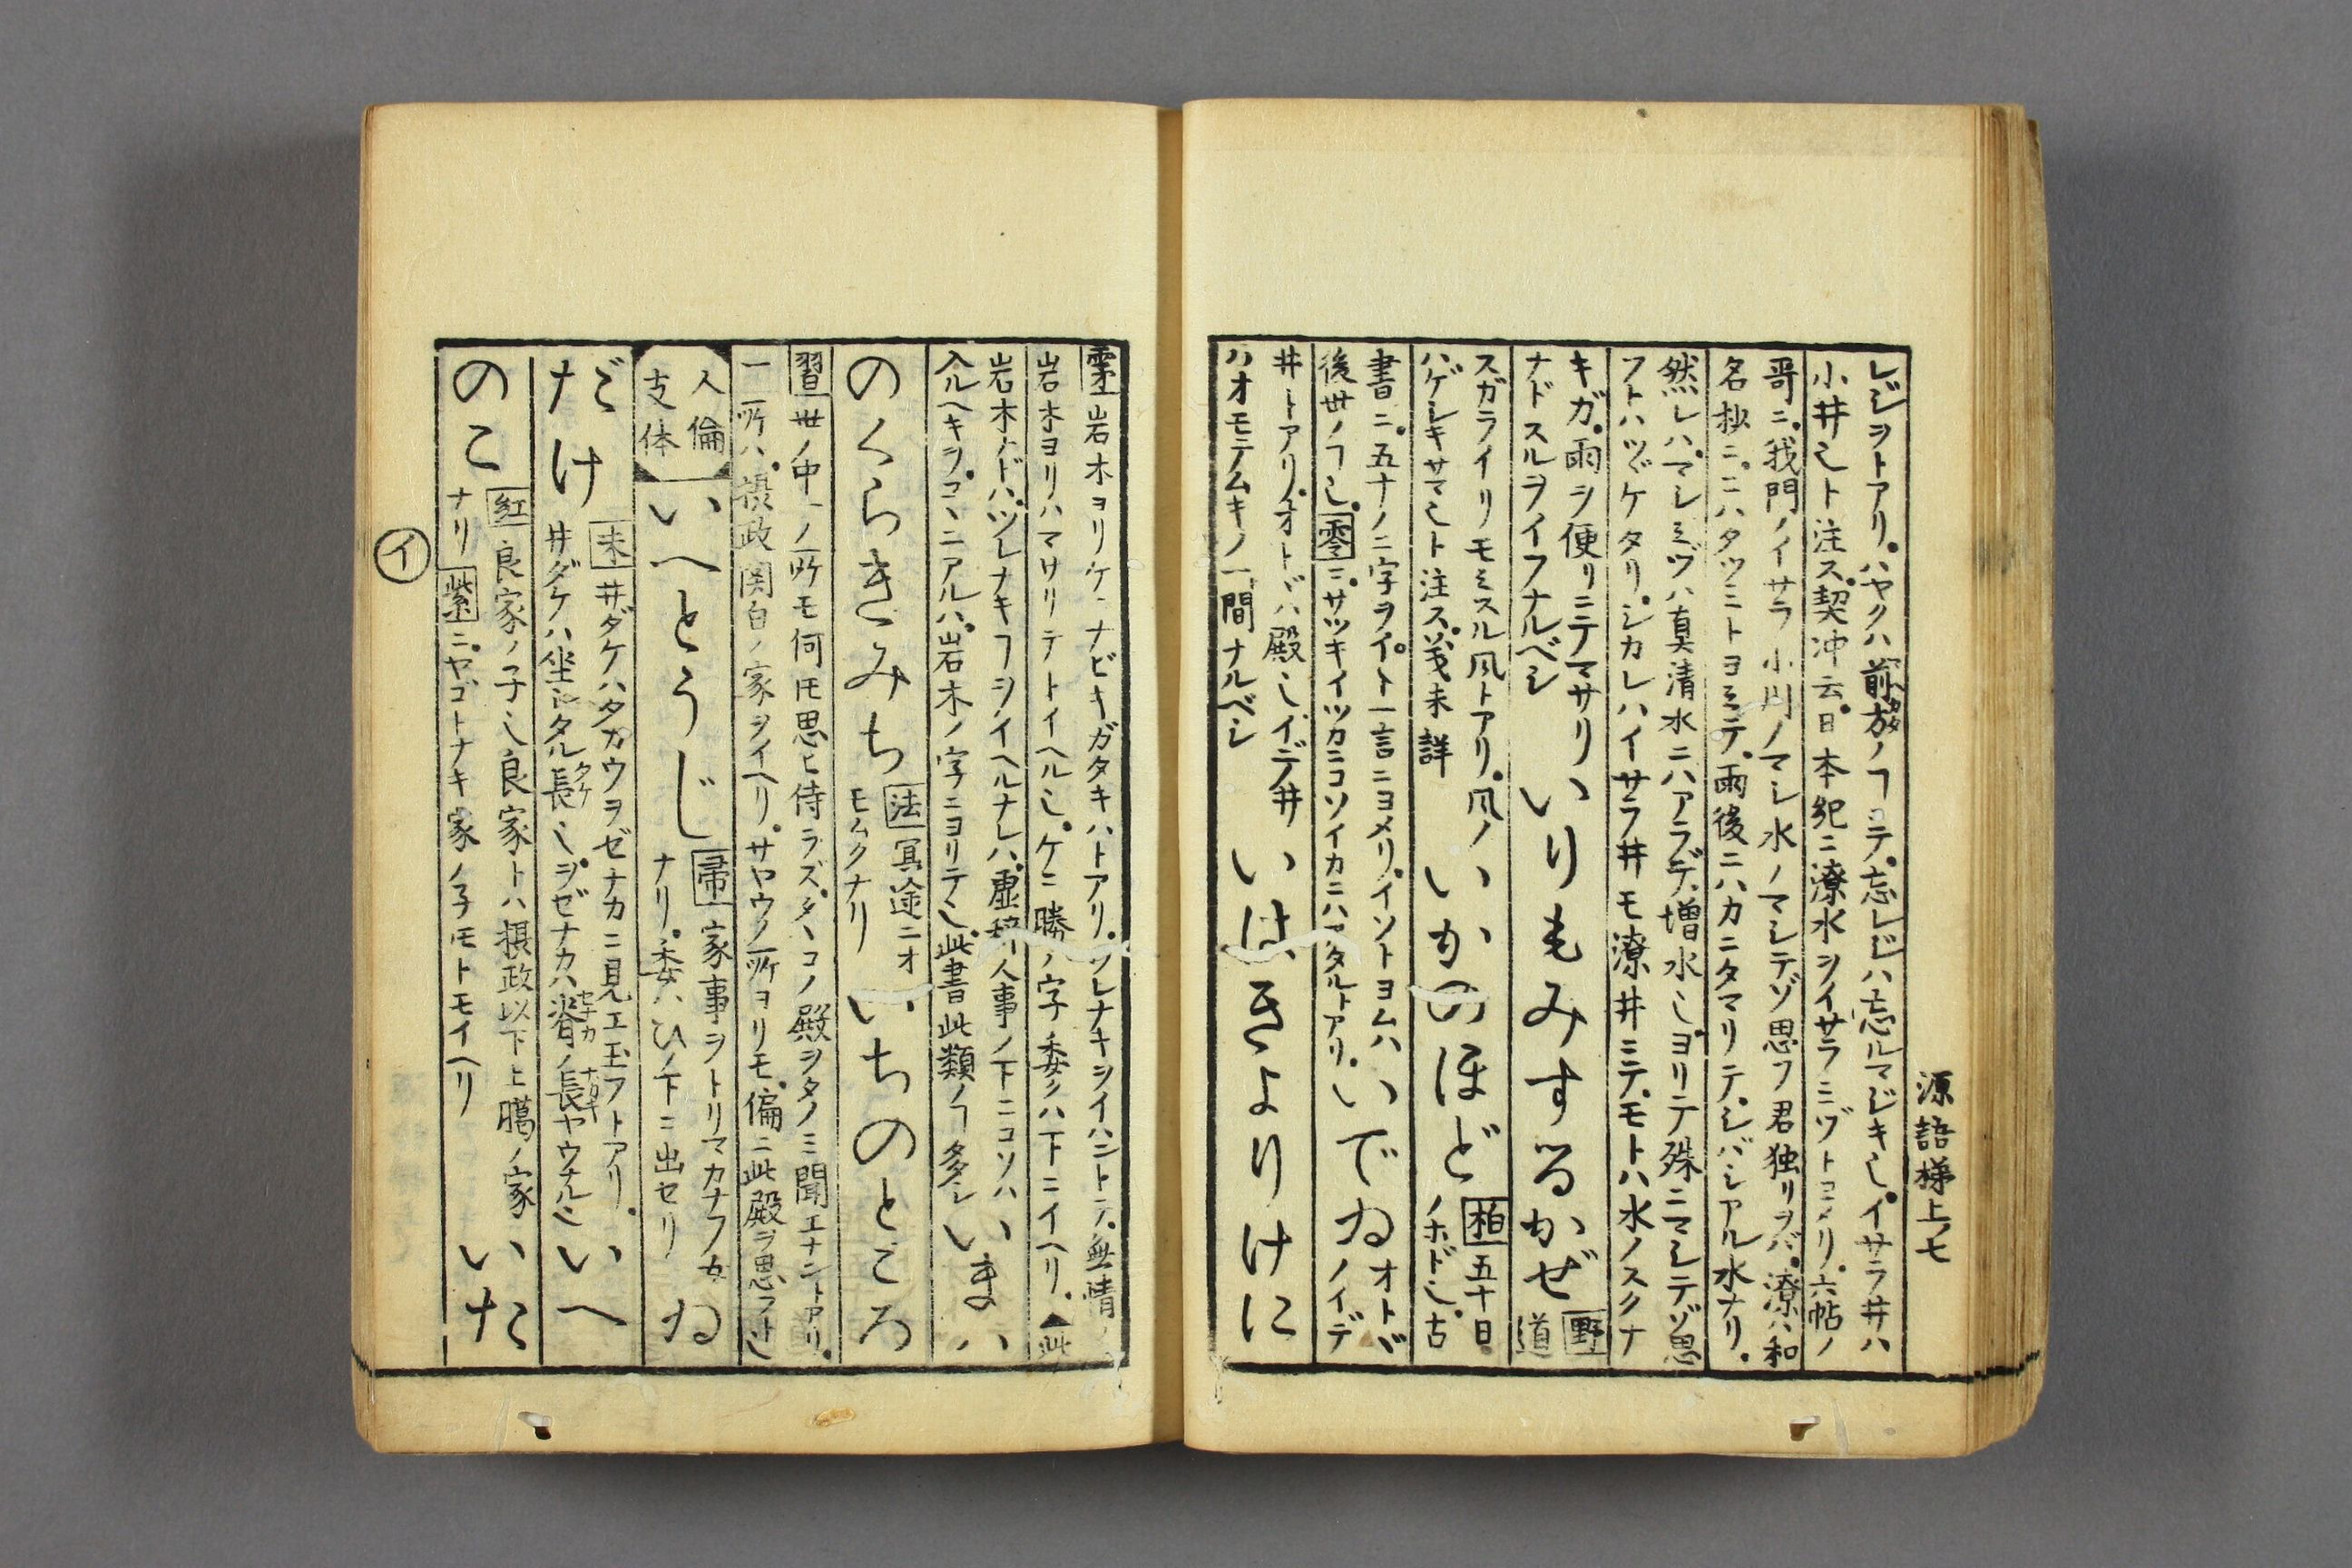 源語梯上ノ七
レジヲトアリ。ハヤクハ前方ノヿニテ。忘レジハ忘ルマジキ也。イサラ井ハ
小井也ト注ス。契沖云。日本紀ニ潦水ヲイサラミヅトヨメリ。六帖ノ
哥ニ。我門ノイサラ小川ノマシ水ノマシテゾ思フ君独リヲバ。潦ハ和
名抄ニ。ニハタツミトヨミテ。雨後ニハカニタマリテ。シバシアル水ナリ。
然レハ。マシミヅハ真清水ニハアラデ。増水也。ヨリテ殊ニマシテゾ思
フトハツヾケタリ。シカレハイサラ井モ潦井ニテ。モトハ水ノスクナ
キガ。雨ヲ便リニテマサリ
ナドスルヲイフナルベシ
いりもみするかぜ
野
道
スガライリモミスル風トアリ。風ノ
ハゲシキサマ也ト注ス。義未詳
いかのほど
柏 五十日
ノホド也。古
書ニ。五十ノ二字ヲイ。ト一言ニヨメリ。イソトヨムハ
後世ノヿ也。零ニ。サツキイツカニコソイカニハアタルトアリ。
いでゐ
オトヾ
ノイデ
井トアリ。オトヾハ殿也。イデ井
ハオモテムキノ一間ナルベシ
いはきよりけに
岩木ヨリケニナビキガタキハトアリ。ツレナキヲイハントテ。無情ノ
岩木ヨリハマサリテトイヘル也。ケニ勝ノ字委クハ下ニイヘリ。▲此
岩木ナドハ。ツレナキヿヲイヘルナレハ。虚辞人事ノ下ニコソハ
入ルヘキヲ。コヽニアルハ。岩木ノ字ニヨリテ也。此書此類ノヿ多シ
いまは
のくらきみち
法 冥途ニオ
モムクナリ
いちのところ
習 世ノ中ニ一ノ所モ何トモ思ヒ侍ラズ。タヽコノ殿ヲタノミ聞エナントアリ。
一ノ所ハ。摂政関白ノ家ヲイヘリ。サヤウノ所ヨリモ。偏ニ此殿ヲ思フト也
人倫
支体
いへとうじ
帚 家事ヲトリマカナフ女
ナリ。委ハひノ下ニ出セリ
ゐ
だけ
末 井ダケハタカウヲゼナカニ見エ玉フトアリ。
井ダケハ坐シタル長也。ヲゼナカハ脊ノ長ヤウナル也
いへ
のこ
紅 良家ノ子也良家トハ摂政以下上臈ノ家
ナリ 紫ニ。ヤゴトナキ家ノ子モトモイヘリ
いた
イ